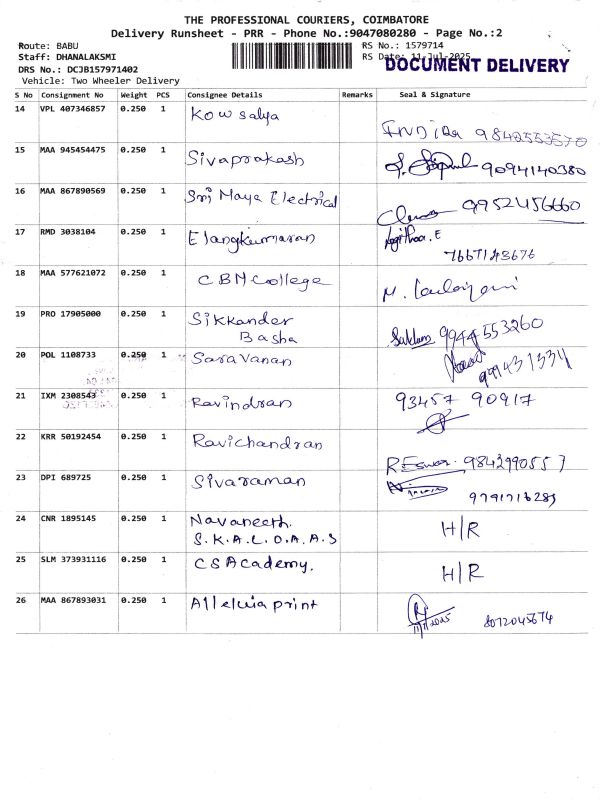 THE PROFESSIONAL COURIERS, COIMBATORE
Delivery Runsheet - PRR - Phone No.:9047080280 - Page No.:2
Route: BABU
Staff: DHANALAKSMI
DRS No.: DCJB157971402
Vehicle: Two Wheeler Delivery
RS No.: 1579714
RS Date: 11-Jul-2025
DOCUMENT DELIVERY
S No Consignment No Weight PCS Consignee Details Remarks Seal & Signature
14 VPL 407346857 0.250 1 Kowsalya
INDIRA 9842553570
15 MAA 945454475 0.250 1 Sivaprakash
9094140380
16 MAA 867890569 0.250 1 Sri Maya Electrical
9952456660
17 RMD 3038104 0.250 1 Elangkumaran
7667143676
18 MAA 577621072 0.250 1 CBM College
19 PRO 17905000 0.250 1 Sikkander
Basha
9944553260
20 POL 1108733 0.250 1 Saravanan
21 IXM 2308543 0.250 1 Ravindran
93457 90917
22 KRR 50192454 0.250 1 Ravichandran
REswar. 9842990557
23 DPI 689725 0.250 1 Sivaraman
24 CNR 1895145 0.250 1 Navaneeth.
S.K.A.L.D.A.A.S
H/R
25 SLM 373931116 0.250 1 CS Academy.
H/R
26 MAA 867893031 0.250 1 Alleluia print
8072045674